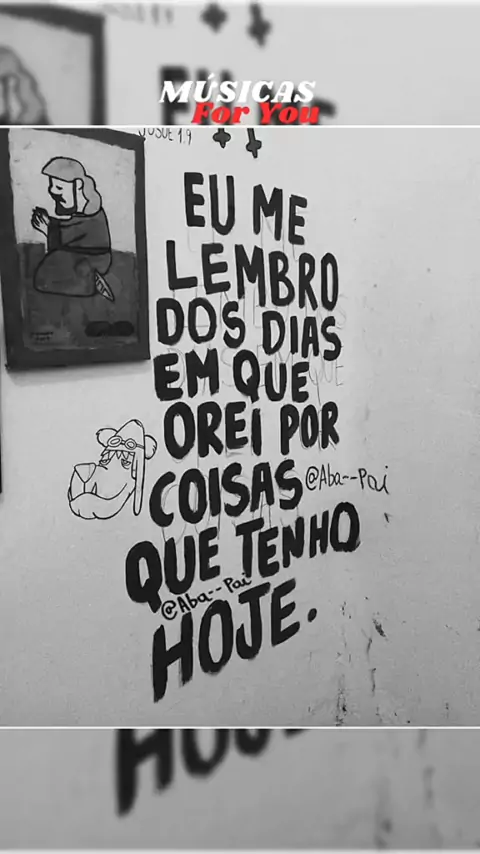 MÚSICAS
For You
JOSUÉ 1.9
EU ME
LEMBRO
DOS DIAS
EM QUE
OREI POR
COISAS
@Aba--Pai
QUE TENHO
@Aba--Pai
HOJE.